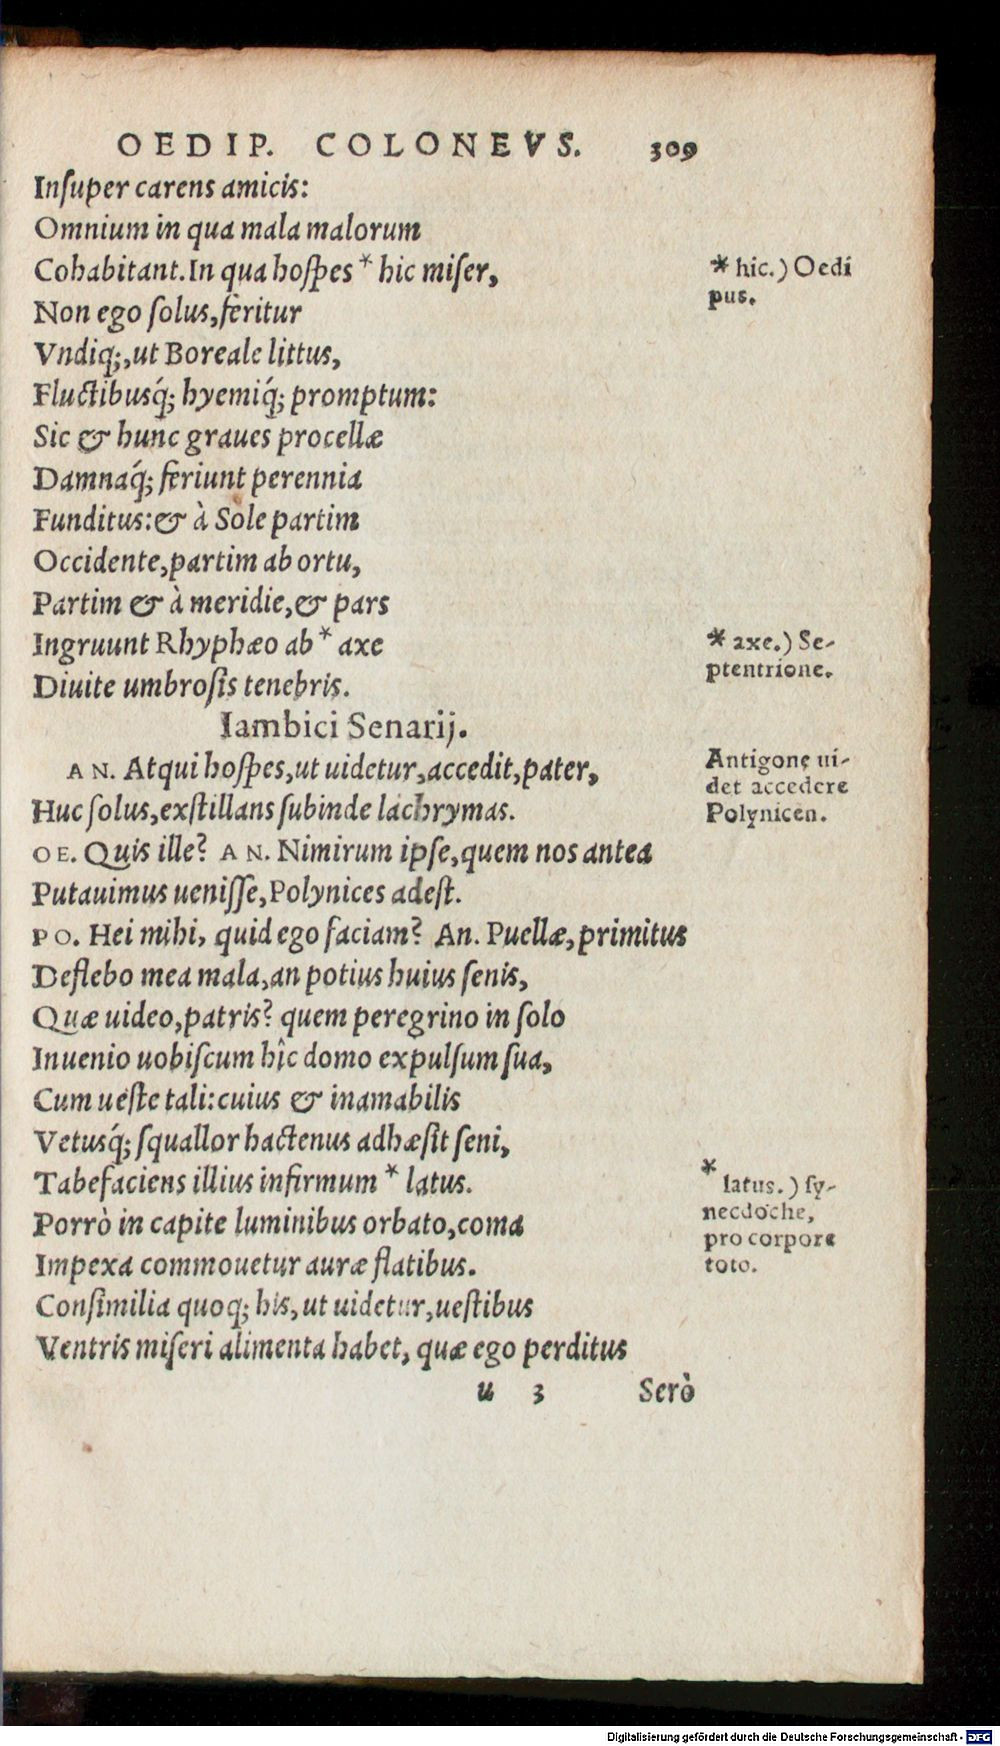 OEDIP. COLONEVS. 309
Inſuper carens amicis:
Omnium in qua mala malorum
Cohabitant. In qua hoſpes * hic miſer,
* hic.) Oedi
pus.
Non ego ſolus, feritur
Vndiq;, ut Boreale littus,
Fluctibusq́; hyemiq́; promptum:
Sic & hunc graues procellæ
Damnaq́; feriunt perennia
Funditus: & à Sole partim
Occidente, partim ab ortu,
Partim & à meridie, & pars
Ingruunt Rhyphæo ab * axe
* axe.) Se-
ptentrione.
Diuite umbroſis tenebris.
Iambici Senarij.
AN. Atqui hoſpes, ut uidetur, accedit, pater,
Antigone ui-
det accedere
Polynicen.
Huc ſolus, exſtillans ſubinde lachrymas.
OE. Quis ille? AN. Nimirum ipſe, quem nos antea
Putauimus ueniſſe, Polynices adeſt.
PO. Hei mihi, quid ego faciam? An. Puellæ, primitus
Deflebo mea mala, an potius huius ſenis,
Quæ uideo, patris? quem peregrino in ſolo
Inuenio uobiſcum hîc domo expulſum ſua,
Cum ueſte tali: cuius & inamabilis
Vetusq́; ſquallor hactenus adhæſit ſeni,
Tabefaciens illius infirmum * latus.
* latus.) ſy-
necdoche,
pro corpore
toto.
Porrò in capite luminibus orbato, coma
Impexa commouetur auræ flatibus.
Conſimilia quoq; his, ut uidetur, ueſtibus
Ventris miſeri alimenta habet, quæ ego perditus
u 3 Serò
Digitalisierung gefördert durch die Deutsche Forschungsgemeinschaft - DFG